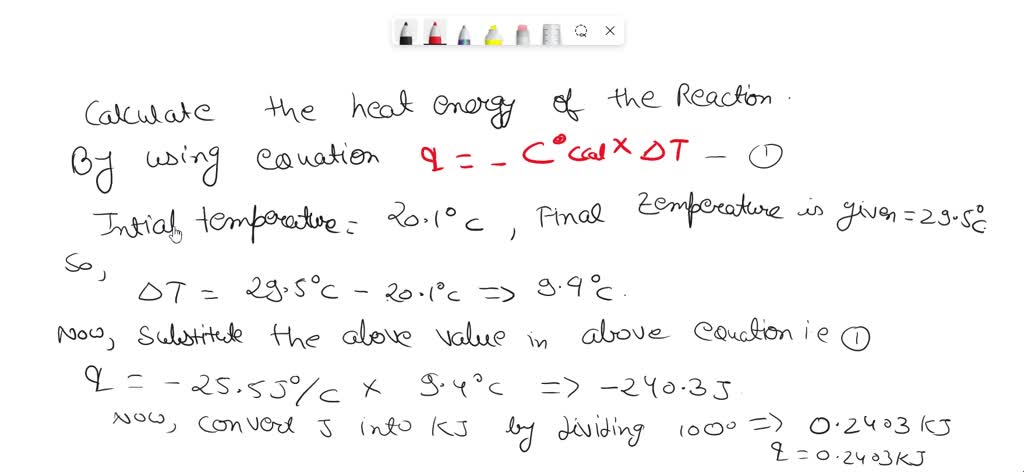 Calculate the heat energy of the Reaction.
By using equation q = - C°cal × ΔT — ①
Intial temperature = 20.1°C, Final temperature is given = 29.5°C
So,
ΔT = 29.5°C - 20.1°C => 9.4°C.
Now, Substitute the above value in above equation ie ①
q = -25.5J°/C × 9.4°C => -240.3J
Now, convert J into KJ by dividing 1000 => 0.2403KJ
q = 0.2403KJ